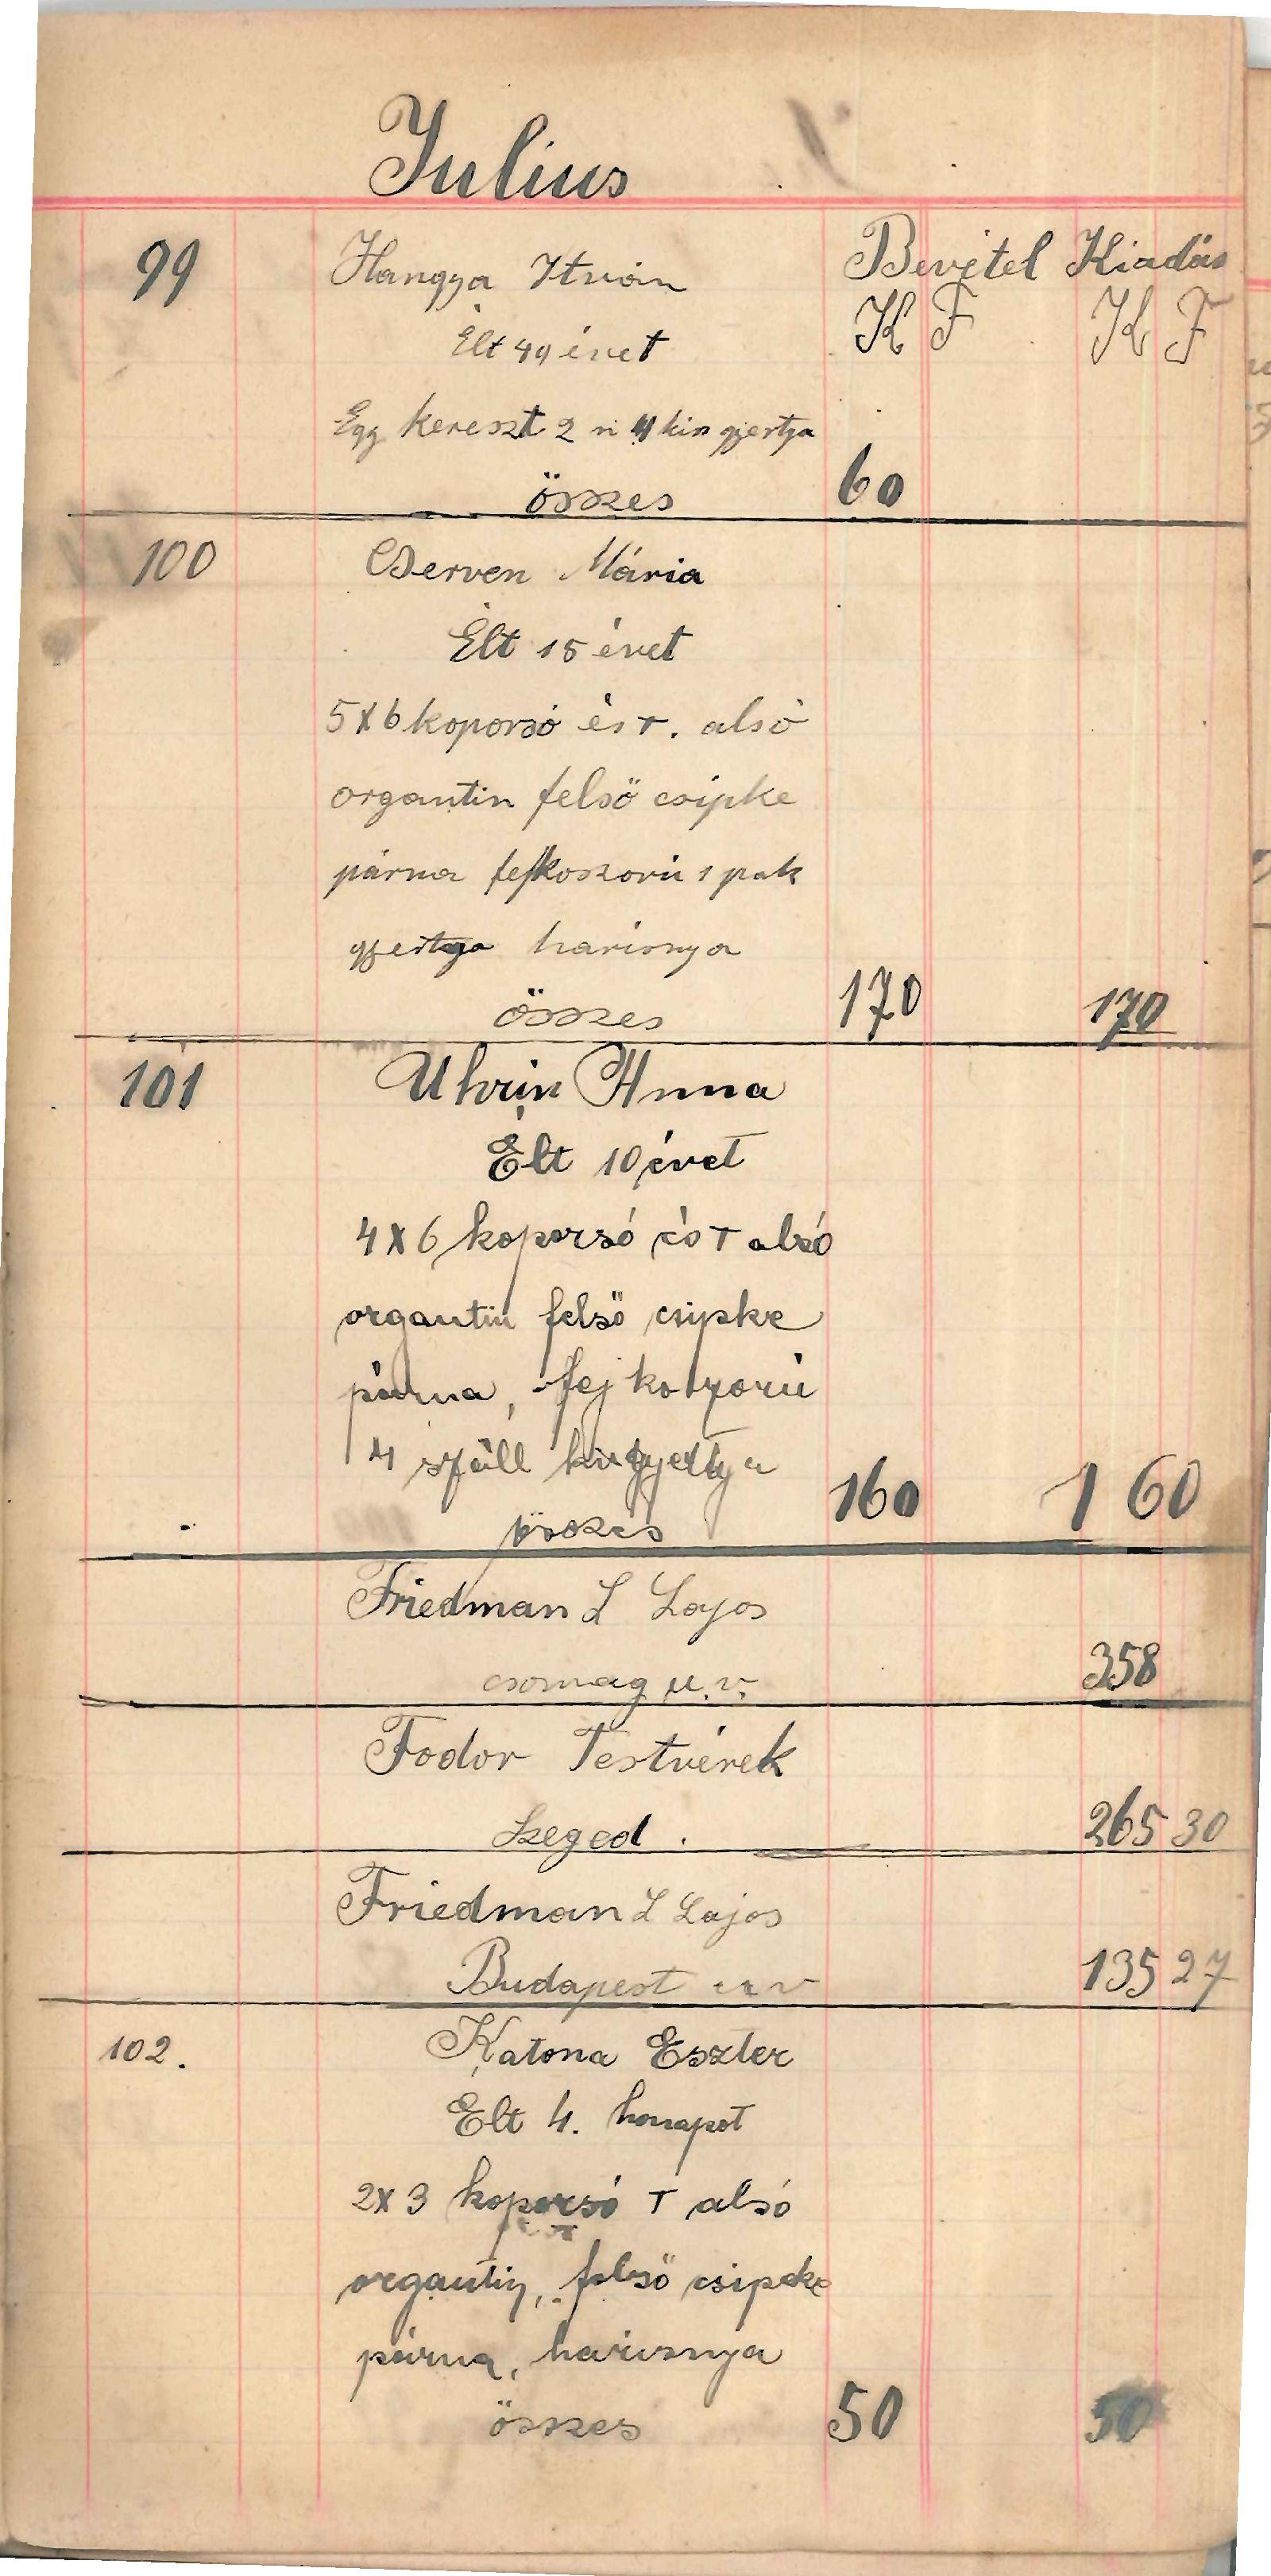 Julius
99 Hangya Itván Bevétel Kiadás
Élt 44 évet K F K F
Egy kereszt 2 n 4 kis gyertya
összes 60
100 Cserven Mária
Élt 15 évet
5x6 koporsó és T. alsó
organtin felső csipke
párna fejkoszorú 1 pak
gyertya harisnya
összes 170 170
101 Uhrin Anna
Élt 10 évet
4x6 koporsó és T alsó
organtin felső csipke
párna, fej koszorú
4 száll kis gyertya
összes 160 160
Friedman L Lajos
csomag u.v. 358
Fodor Testvérek
Szeged. 265 30
Friedman L Lajos
Budapest u v 135 27
102. Katona Eszter
Elt 4. honapot
2x3 koporsó T alsó
organtin, felső csipke
párna, harisnya
összes 50 50